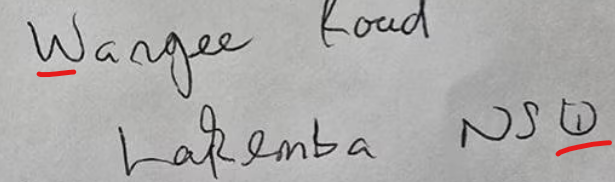 Wangee Road
Lakemba NSW